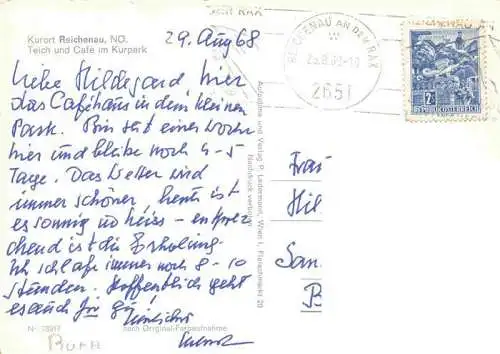 Kurort Reichenau, NÖ.
Teich und Café im Kurpark
29. Aug 68
Liebe Hildegard, hier
das Caféhaus in dem kleinen
Park. Bin seit einer Woche
hier und bleibe noch 4-5
Tage. Das Wetter wird
immer schöner, heute ist
es sonnig und heiss - entspre
chend ist die Erholung.
Ich schlafe immer noch 8-10
Stunden. Hoffentlich geht
es auch Dir gut
Herzlichst
Nr. 18917
nach Original-Farbaufnahme
Aufnahme und Verlag P. Ledermann, Wien I, Fleischmarkt 20
Nachdruck verboten
DER RAX
REICHENAU AN DER RAX
2651
REPUBLIK ÖSTERREICH
Frau
Hil
San.
B